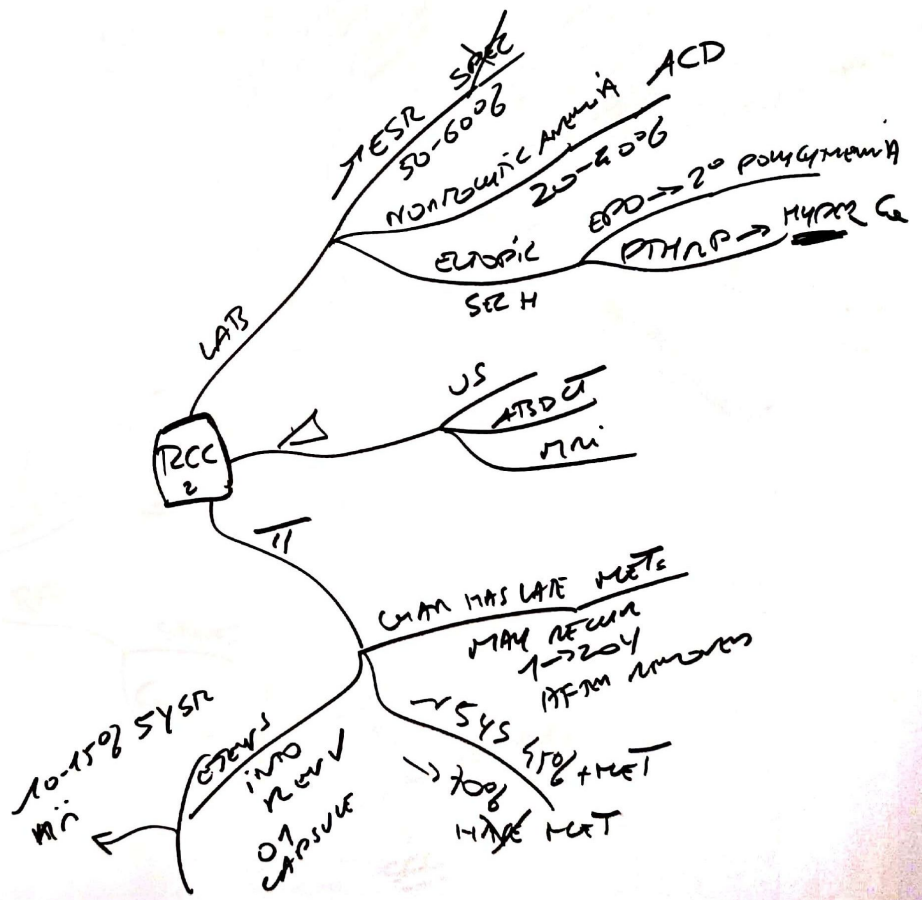 ↑ESR SPEC
50-60%
NORMOCYTIC ANEMIA ACD
20-40%
ECTOPIC
SEC H
EPO → 2° POLYCYTHEMIA
PTHRP → HYPER Ca
LAB
RCC
2
Δ
US
ABD CT
MRI
π
CHAR HAS LATE METs
MAY RECUR
1→20Y
AFTER REMOVED
~5YS 45% +MET
→ 70%
HAVE MET
EXTENDS
INTO
REN V
OR
CAPSULE
10-15% 5YSR